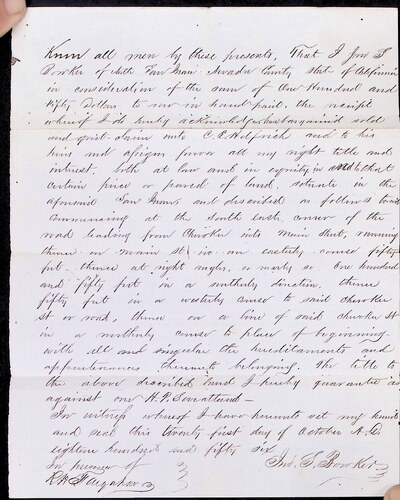 Know all men by these presents, That I Jno S
Bowker of North San Juan Nevada County State of California
in consideration of the sum of One Hundred and
Fifty Dollars to me in hand paid, the receipt
whereof I do hereby acknowledge, have bargained sold
and quit-claim unto C. C. Helfrich and to his
heirs and assigns forever all my right title and
interest, both at law and in equity in and to that
certain piece or parcel of land, situate in the
aforesaid San Juan and described as follows to wit
Commencing at the South East corner of the
road leading from Cherokee into Main Street, running
thence on Main St in an easterly course fifty
feet, thence at right angles, or nearly so One hundred
and fifty feet in a southerly direction, thence
fifty feet in a westerly course to said Cherokee
St or road, thence on a line of said Cherokee St
in a northerly course to place of beginning
with all and singular the hereditaments and
appurtenances thereunto belonging. The title to
the above described land I hereby guarantee as
against one
In witness whereof I have hereunto set my hand
and seal this twenty first day of October A.D.
eighteen hundred and fifty six
In presence of Jno. S. Bowker